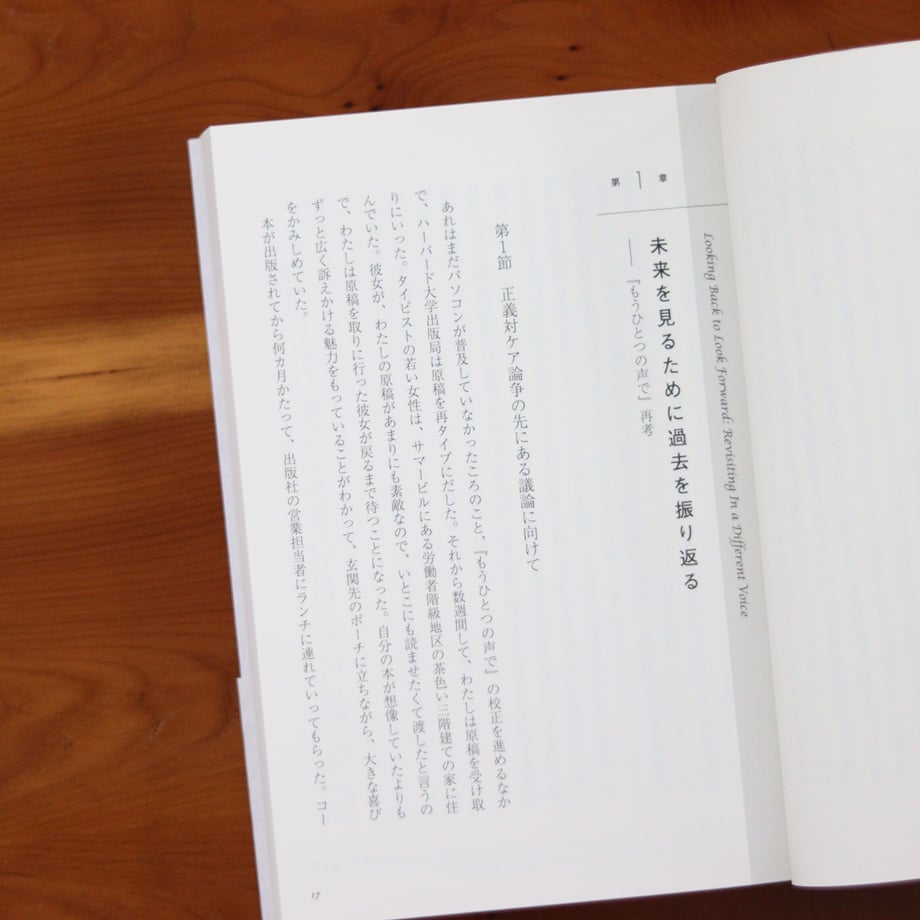 Looking Back to Look Forward: Revisiting In a Different Voice
第1章
未来を見るために過去を振り返る
——『もうひとつの声で』再考
第1節　正義対ケア論争の先にある議論に向けて
あれはまだパソコンが普及していなかったころのこと、『もうひとつの声で』の校正を進めるなか
で、ハーバード大学出版局は原稿を再タイプにだした。それから数週間して、わたしは原稿を受け取
りにいった。タイピストの若い女性は、サマービルにある労働者階級地区の茶色い三階建ての家に住
んでいた。彼女が、わたしの原稿があまりにも素敵なので、いとこにも読ませたくて渡したと言うの
で、わたしは原稿を取りに行った彼女が戻るまで待つことになった。自分の本が想像していたよりも
ずっと広く訴えかける魅力をもっていることがわかって、玄関先のポーチに立ちながら、大きな喜び
をかみしめていた。
本が出版されてから何カ月かたって、出版社の営業担当者にランチに連れていってもらった。コー
17